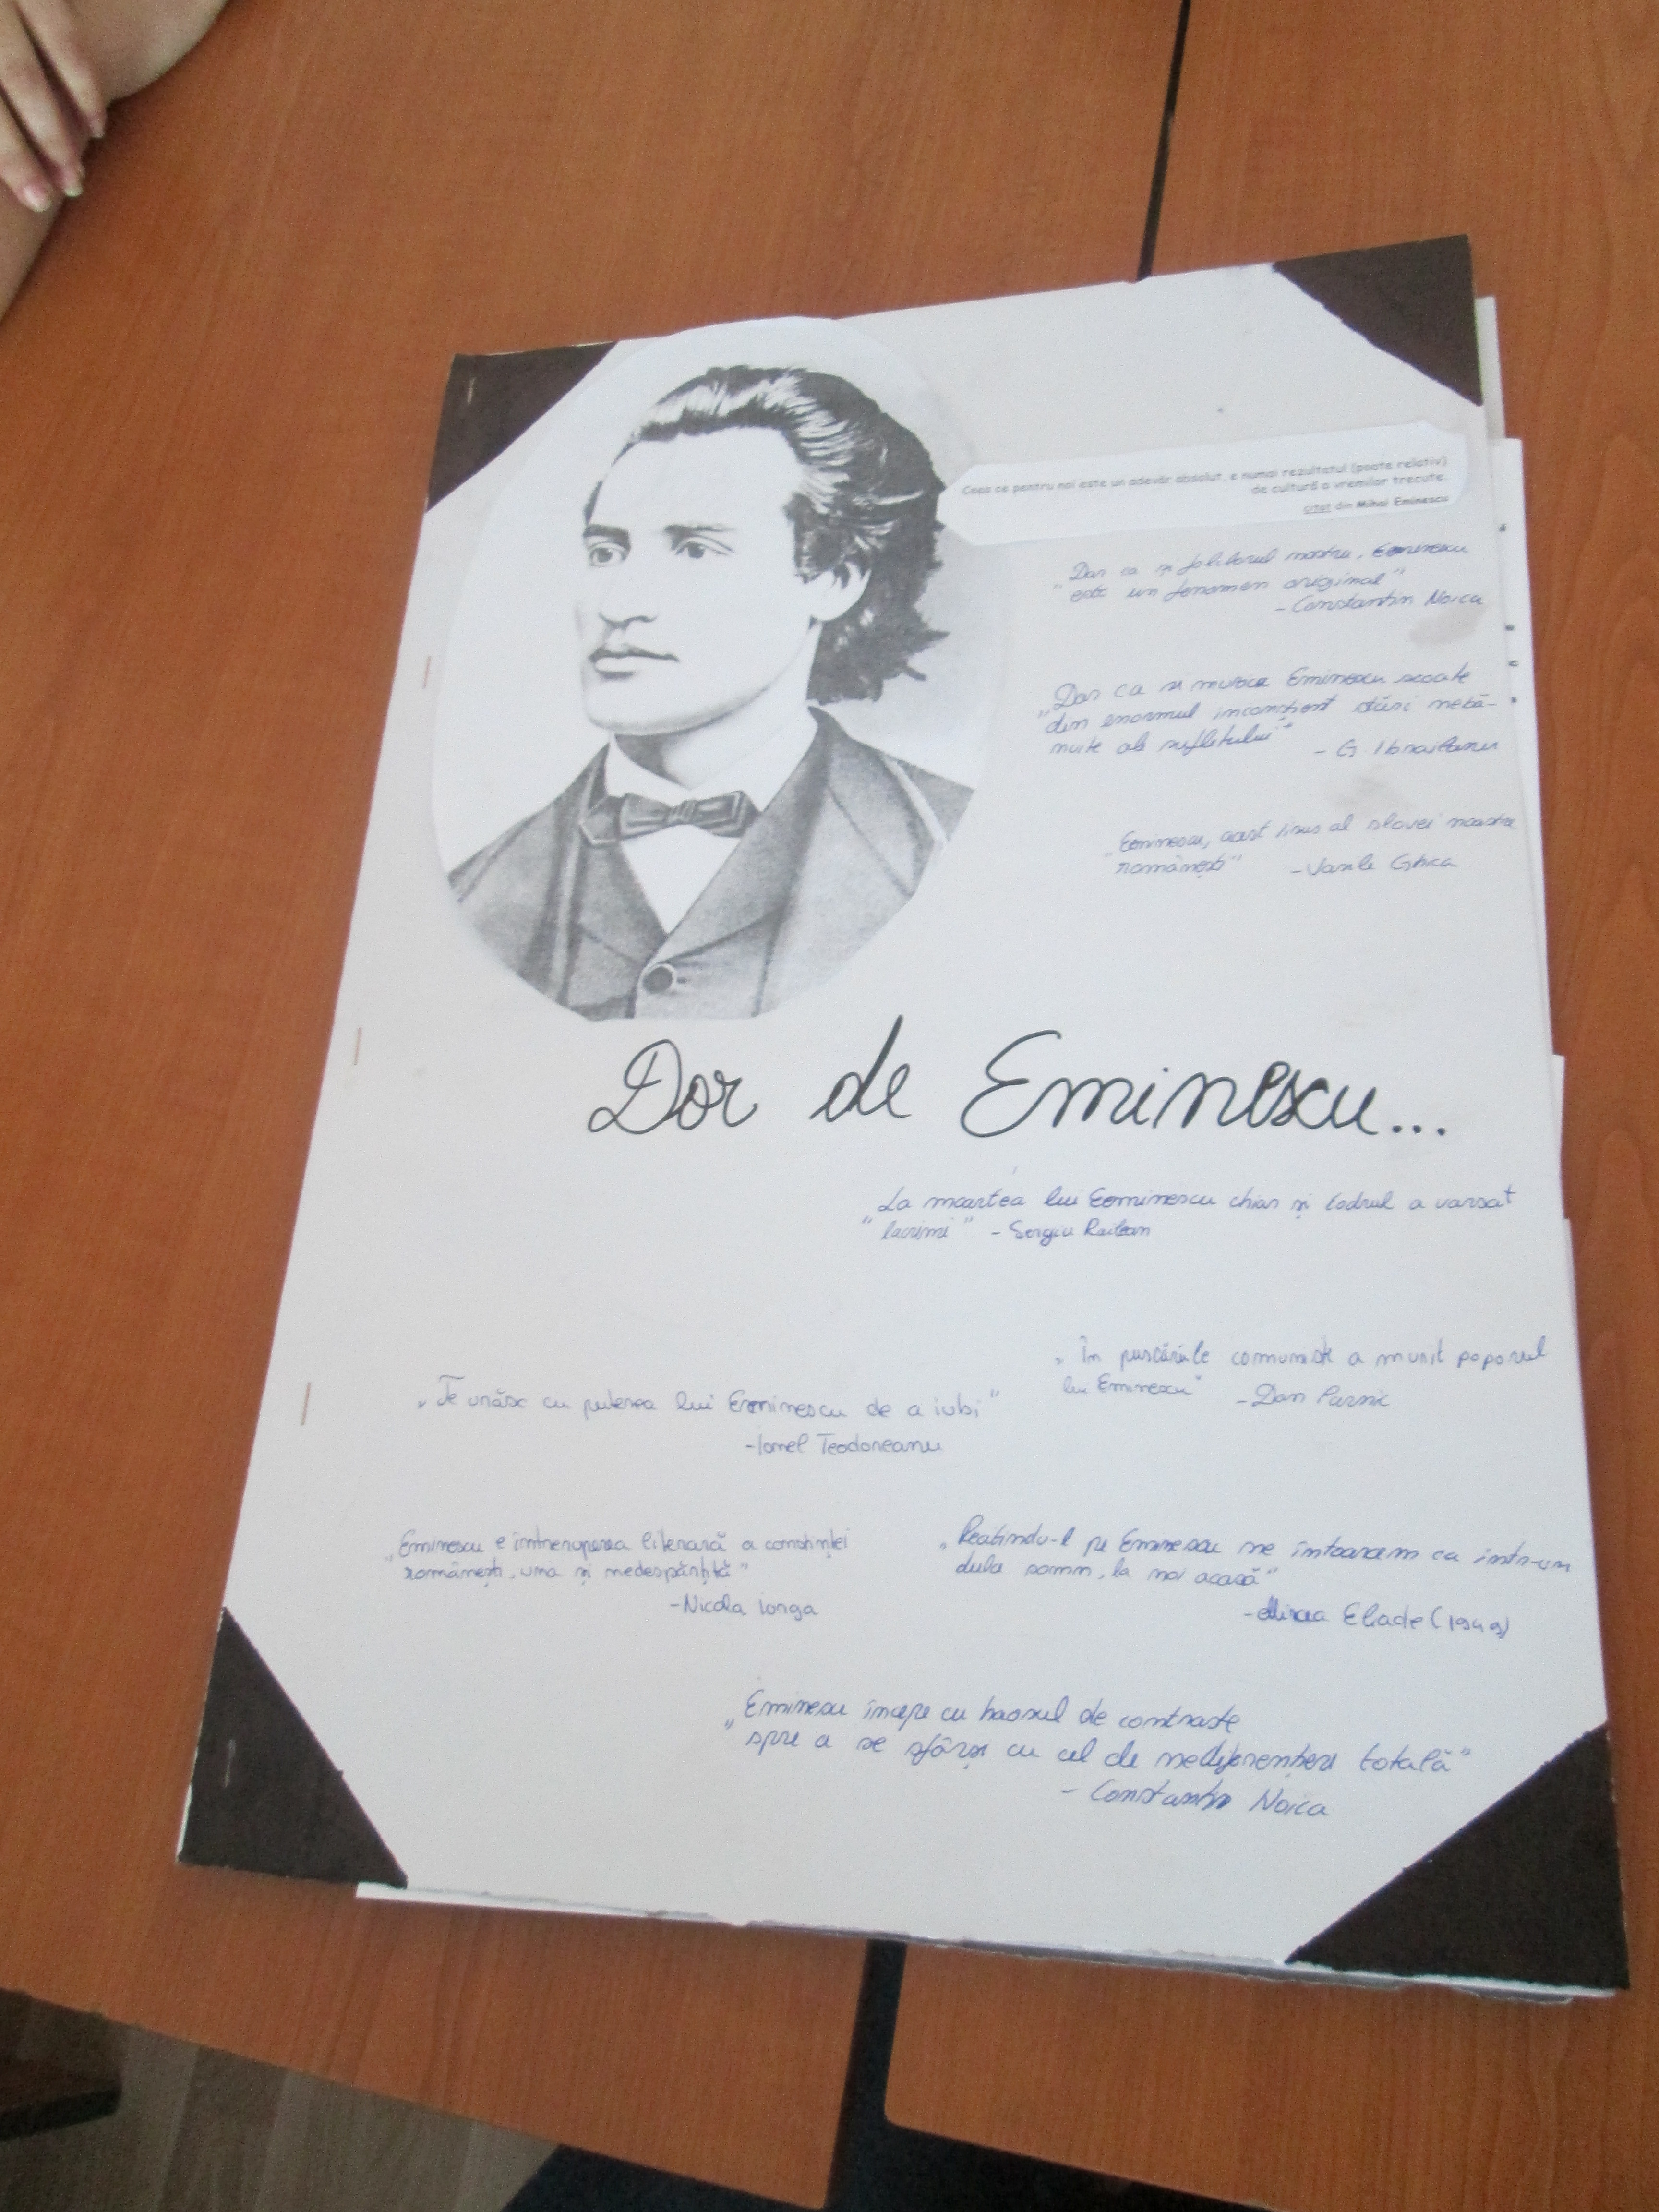 Ceea ce pentru noi este un adevăr absolut, e numai rezultatul (poate relativ)
de cultură a vremilor trecute.
citat din Mihai Eminescu
„Dar ca și folclorul nostru, Eminescu
este un fenomen original"
- Constantin Noica
„Dar ca și muzica Eminescu scoate
din enormul inconștient stări nebă-
nuite ale sufletului"
- G Ibraileanu
"Eminescu, acest Iisus al slavei noastre
românești" - Vasile Ghica
Dor de Eminescu...
La moartea lui Eminescu chiar și codrul a varsat
"lacrimi" - Sergiu Railean
„În pușcăriile comuniste a murit poporul
lui Eminescu" - Dan
„Te urăsc cu puterea lui Eminescu de a iubi"
- Ionel Teodoreanu
„Eminescu e întreruperea literară a constinței
românești, una și nedespărțită"
- Nicola Iorga
„Recitindu-l pe Eminescu ne întoarcem ca intr-un
dulce somn, la noi acasă"
- Mircea Eliade (1949)
„Eminescu începe cu haosul de contraste
spre a se sfârși cu cel de totală"
- Constantin Noica